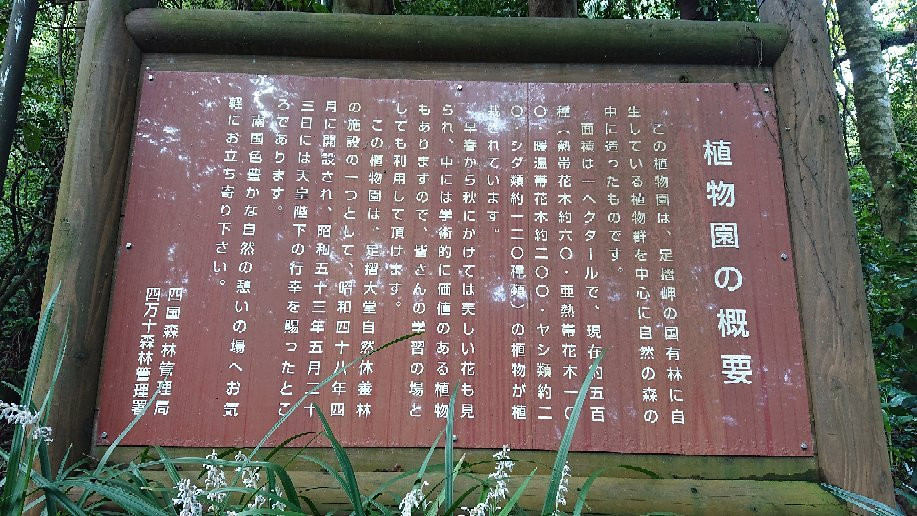 植物園の概要
この植物園は、足摺岬の国有林に自
生している植物群を中心に自然の森の
中に造ったものです。
面積は一ヘクタールで、現在約五百
種(熱帯花木約六〇・亜熱帯花木一〇
〇・暖温帯花木約二〇〇・ヤシ類約二
〇・シダ類約一二〇種類)の植物が植
栽されています。
早春から秋にかけては美しい花も見
られ、中には学術的に価値のある植物
もありますので、皆さんの学習の場と
しても利用して頂けます。
この植物園は、足摺大堂自然休養林
の施設の一つとして、昭和四十八年四
月に開設され、昭和五十三年五月二十
三日には天皇陛下の行幸を賜ったとこ
ろであります。
南国色豊かな自然の憩いの場へお気
軽にお立ち寄り下さい。
四国森林管理局
四万十森林管理署